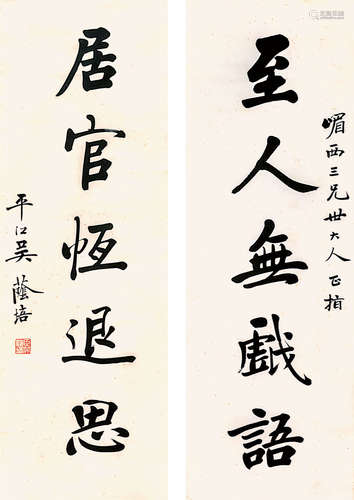 嵋西三兄世大人正掯
至人無戲語
居官恆退思
平江吳蔭培